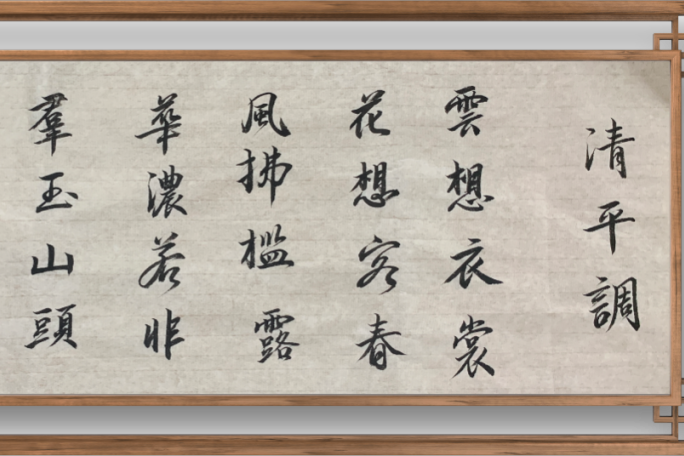 清平調
雲想衣裳
花想客春
風拂檻露
華濃若非
羣玉山頭